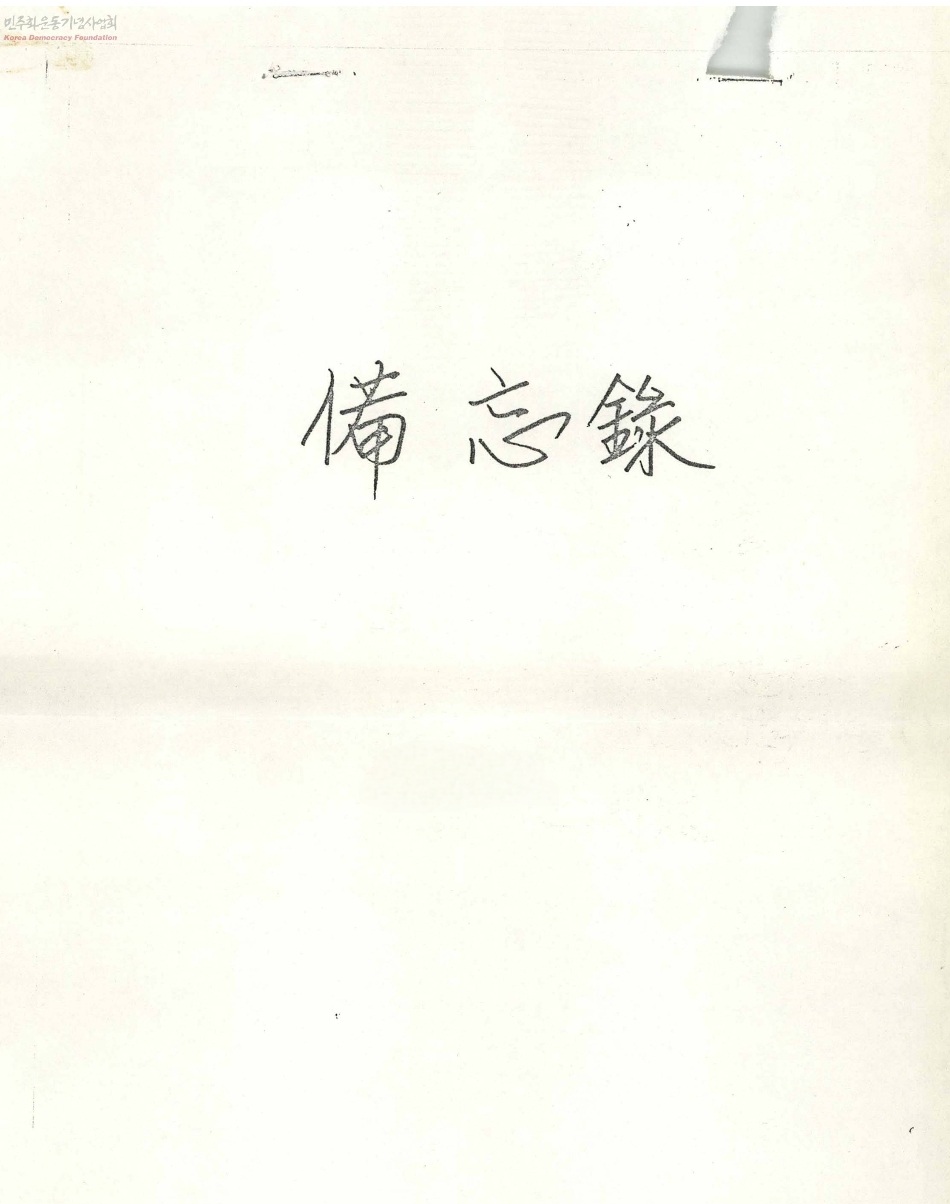 민주화운동기념사업회
Korea Democracy Foundation
備忘錄